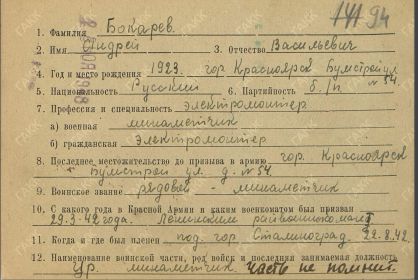 141 94
1. Фамилия Бокарев.
2. Имя Андрей 3. Отчество Васильевич
4. Год и место рождения 1923. гор. Красноярск Бумстрой ул.
5. Национальность Русский 6. Партийность б/п N 54
7. Профессия и специальность электромонтер
а) военная минаметчик
б) гражданская электромонтер
8. Последнее местожительство до призыва в армию гор. Красноярск
Бумстрой ул. д. N 54
9. Воинское звание рядовой - минаметчик
10. С какого года в Красной Армии и каким военкоматом был призван
29.3-42 года. Ленинским райвоенкомат
11. Когда и где был пленен под. гор. Сталиноград. 22.8.42.
12. Наименование воинской части, род войск и последняя занимаемая должность
минаметчик. часть не помнит.